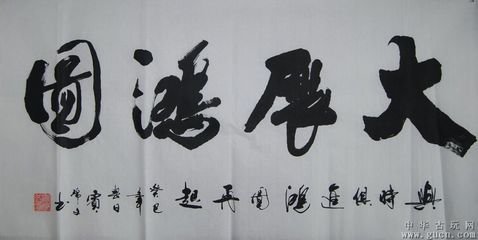 大展鴻圖
與時俱進鴻圖再起
癸巳
年
中华古玩网
www.gucn.com